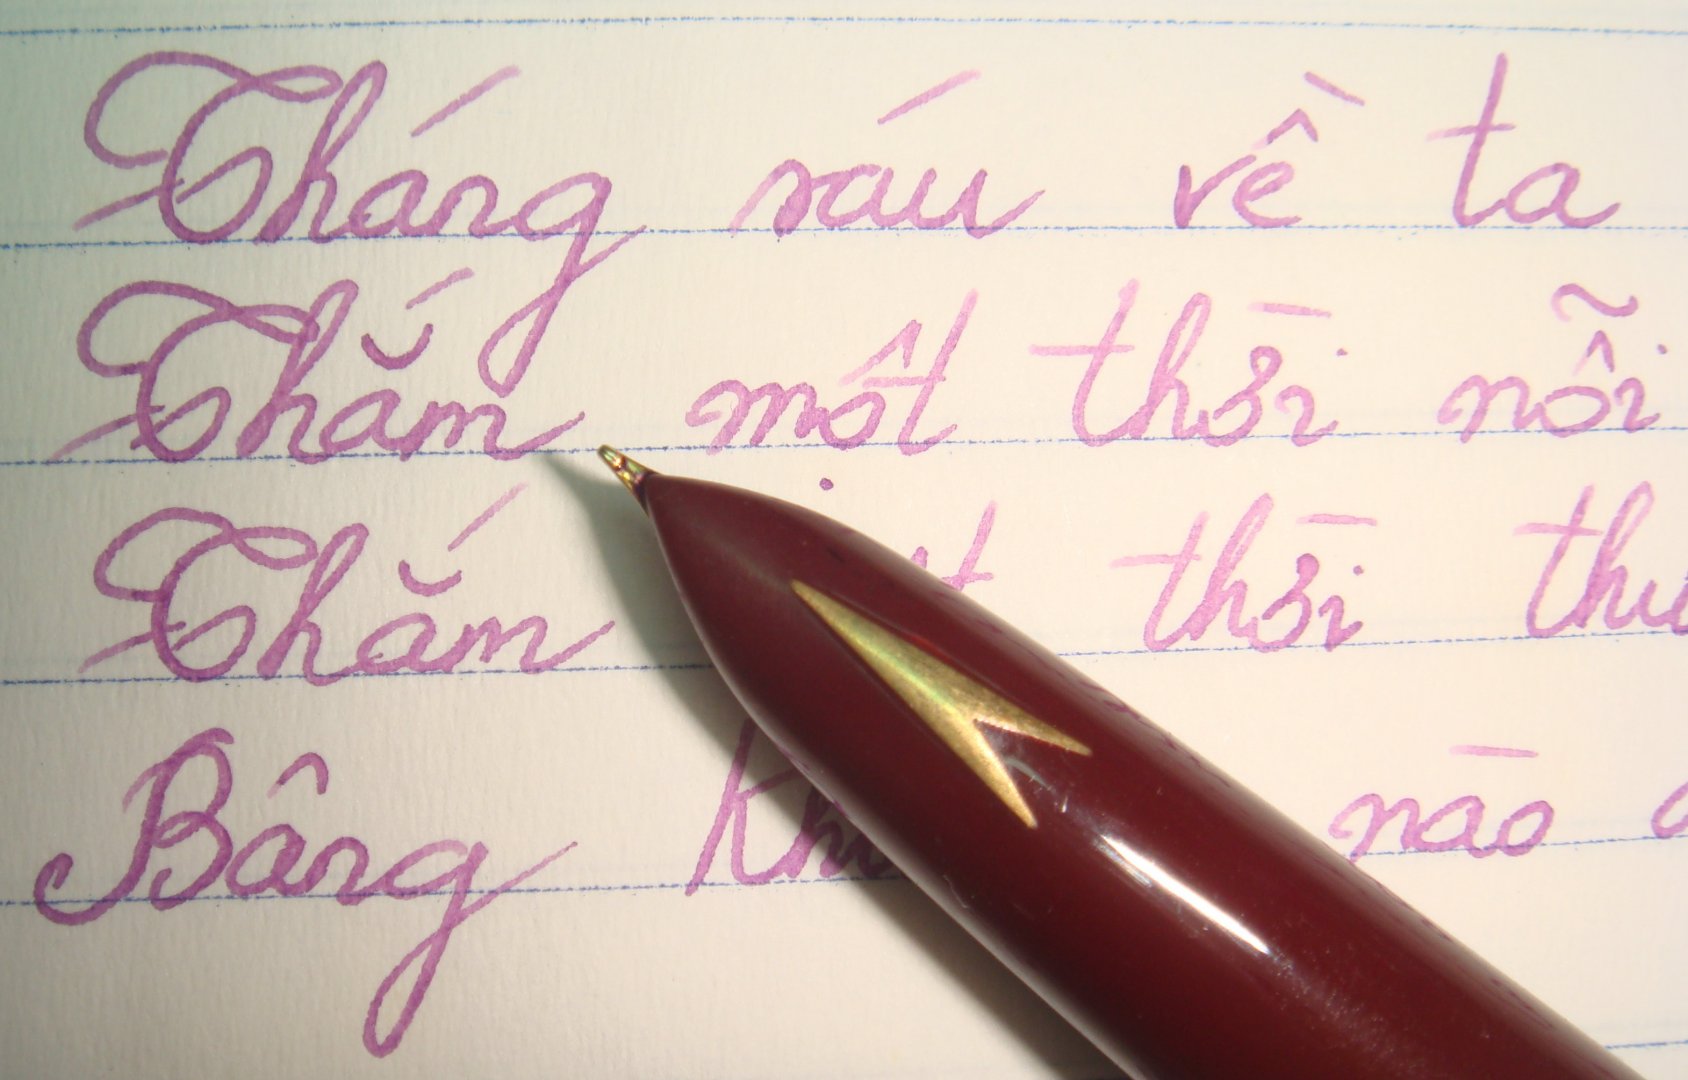 Tháng sáu về ta
Thắm một thời nỗi
Thắm thời
Bâng nào